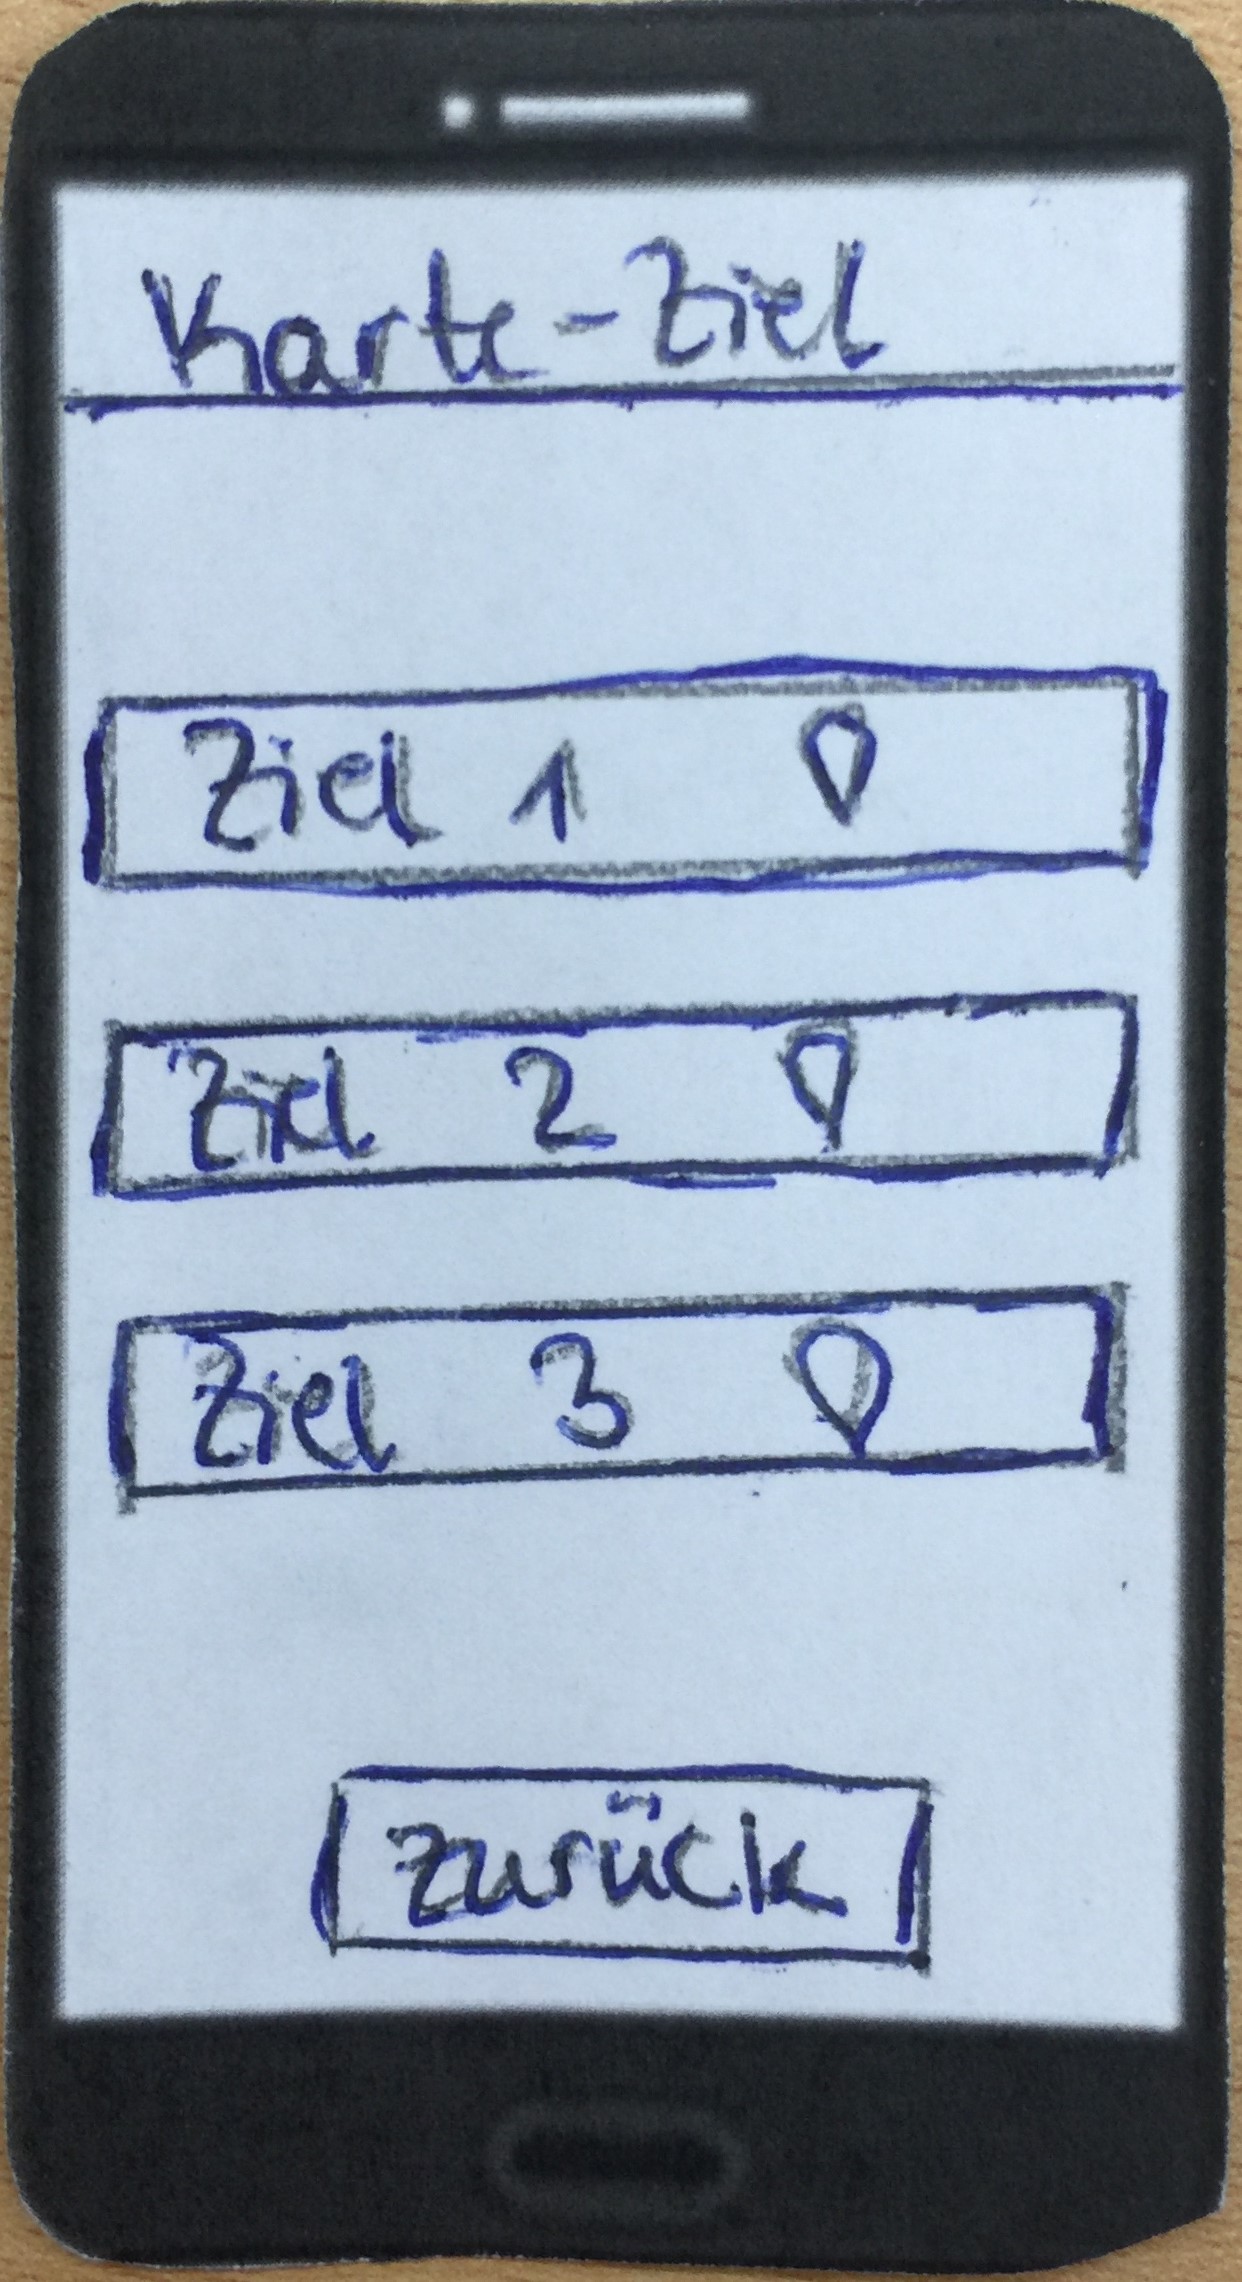 Karte-Ziel
Ziel 1
Ziel 2
Ziel 3
zurück